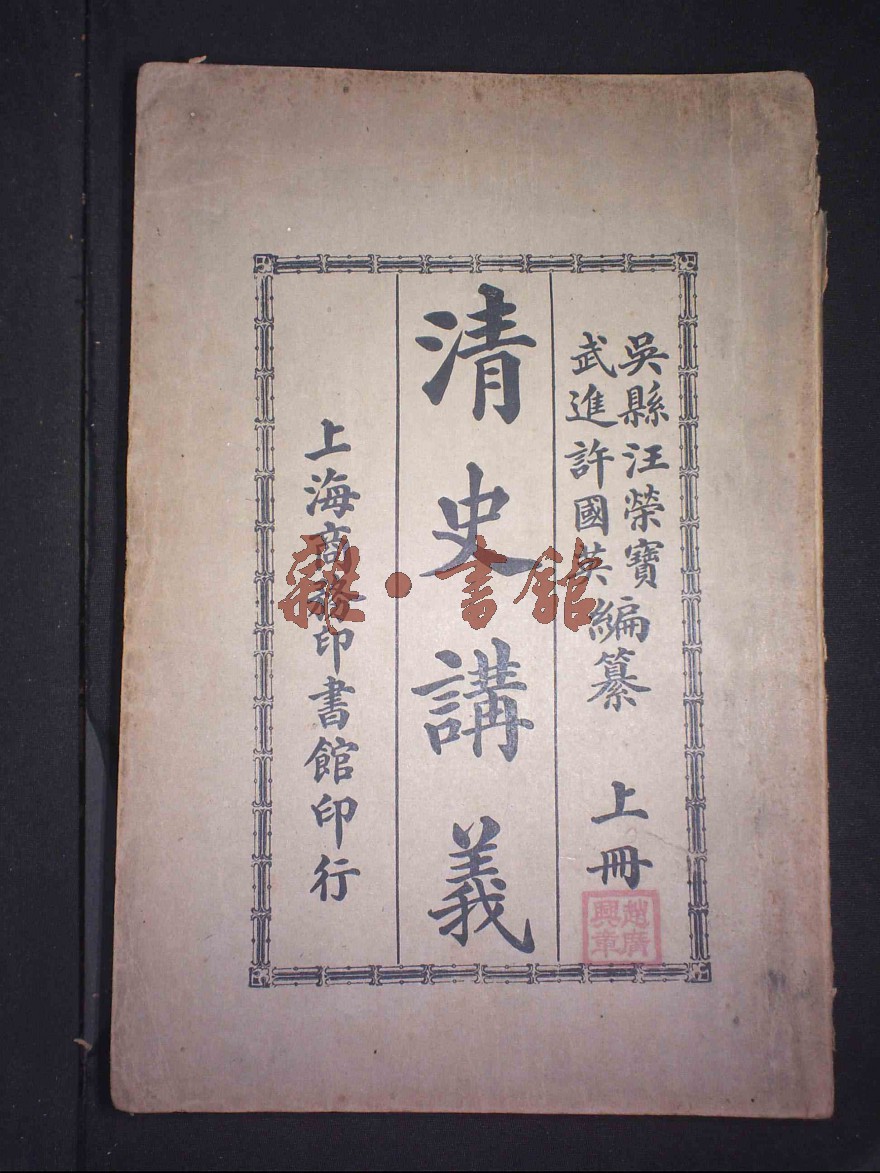 吳縣汪榮寶
武進許國英編纂
上冊
清史講義
上海商務印書館印行
趙廣興章
雜·書館